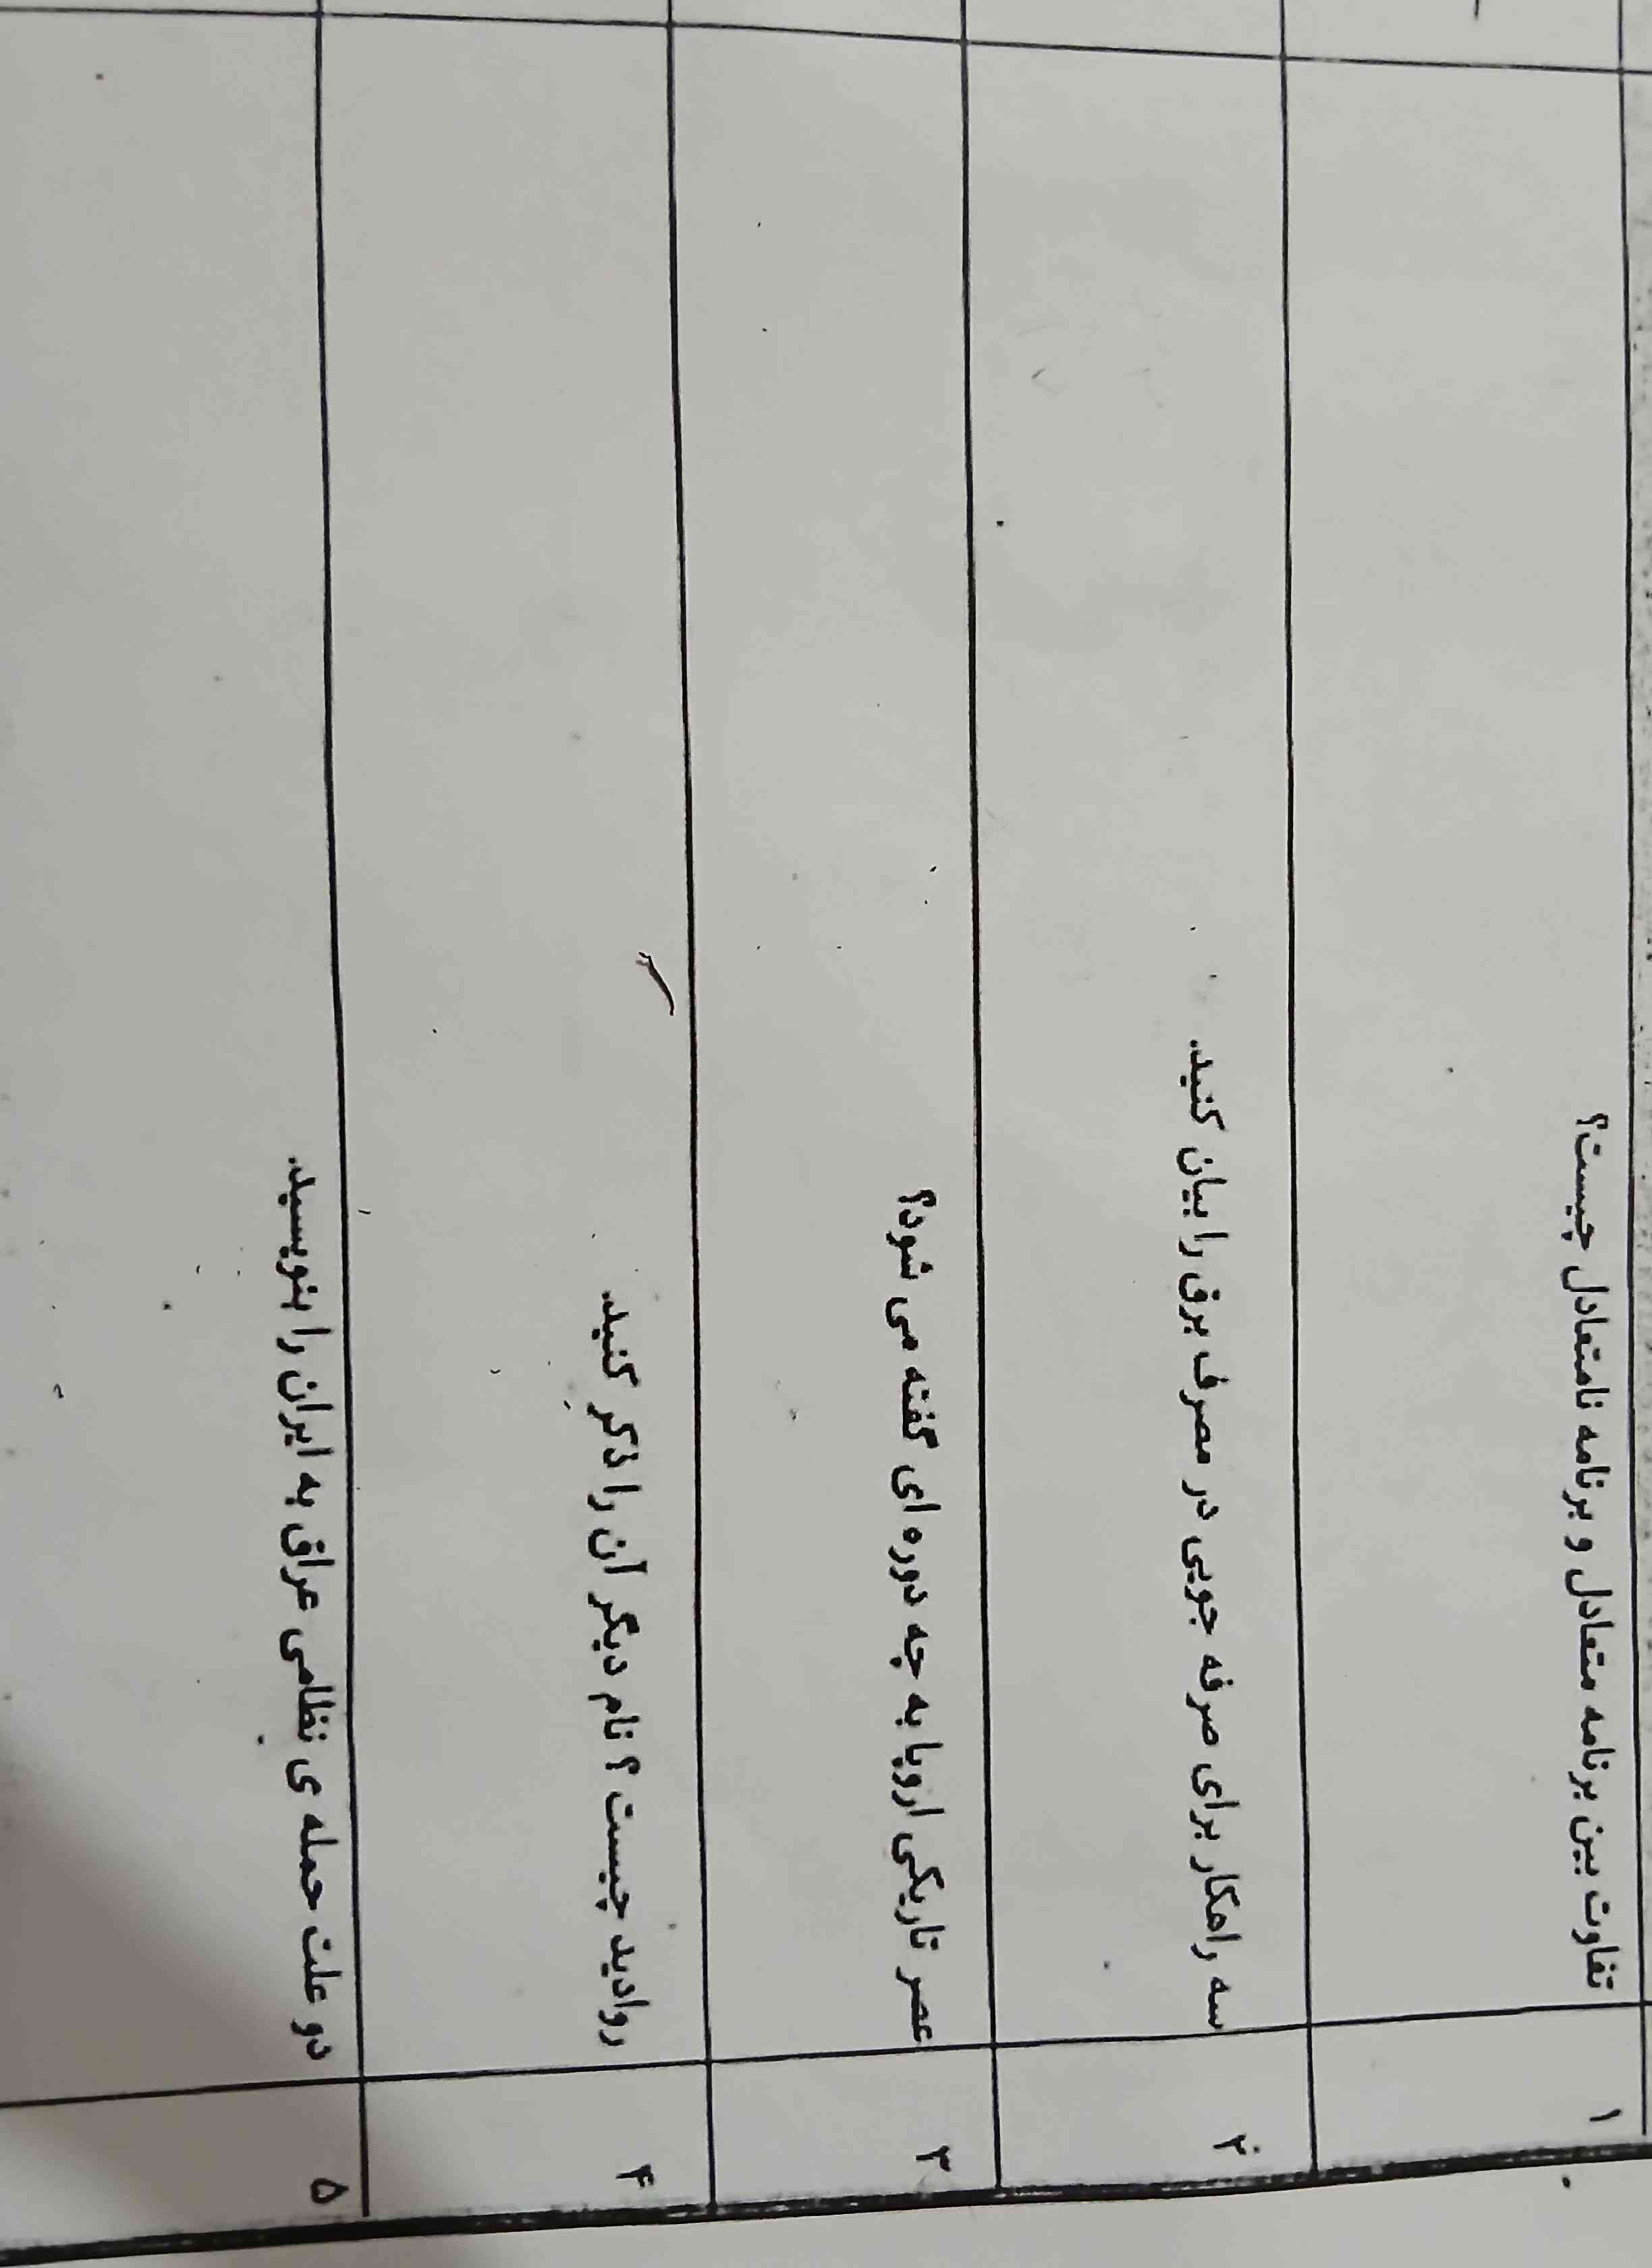 ۱ تفاوت بین برنامه متعادل و برنامه نامتعادل چیست؟
۲ سه راهکار برای صرفه جویی در مصرف برق را بیان کنید.
۳ عصر تاریکی اروپا به چه دوره ای گفته می شود؟
۴ روادید چیست ؟ نام دیگر آن را ذکر کنید.
۵ دو علت حمله ی نظامی عراق به ایران را بنویسید.